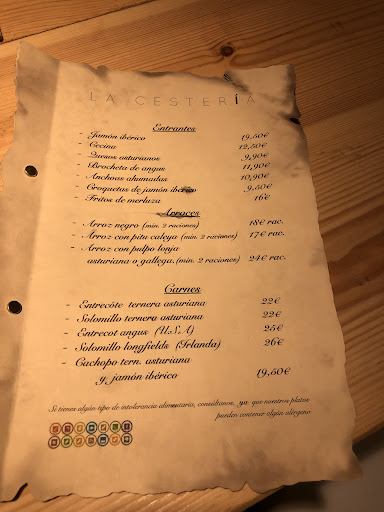 LA CESTERÍA
Entrantes
- Jamón ibérico 19,50€
- Cecina 12,50€
- Quesos asturianos 9,90€
- Brocheta de angus 11,90€
- Anchoas ahumadas 10,90€
- Croquetas de jamón ibérico 9,50€
- Fritos de merluza 16€
Arroces
- Arroz negro (min. 2 raciones) 18€ rac.
- Arroz con pitu caleya (min. 2 raciones) 17€ rac.
- Arroz con pulpo lonja
asturiana o gallega.(min. 2 raciones) 24€ rac.
Carnes
- Entrecôte ternera asturiana 22€
- Solomillo ternera asturiana 22€
- Entrecot angus (U.S.A) 25€
- Solomillo longfields (Irlanda) 26€
- Cachopo tern. asturiana
y jamón ibérico 19,50€
Si tienes algún tipo de intolerancia alimentaria, consúltanos, ya que nuestros platos
pueden contener algún alérgeno